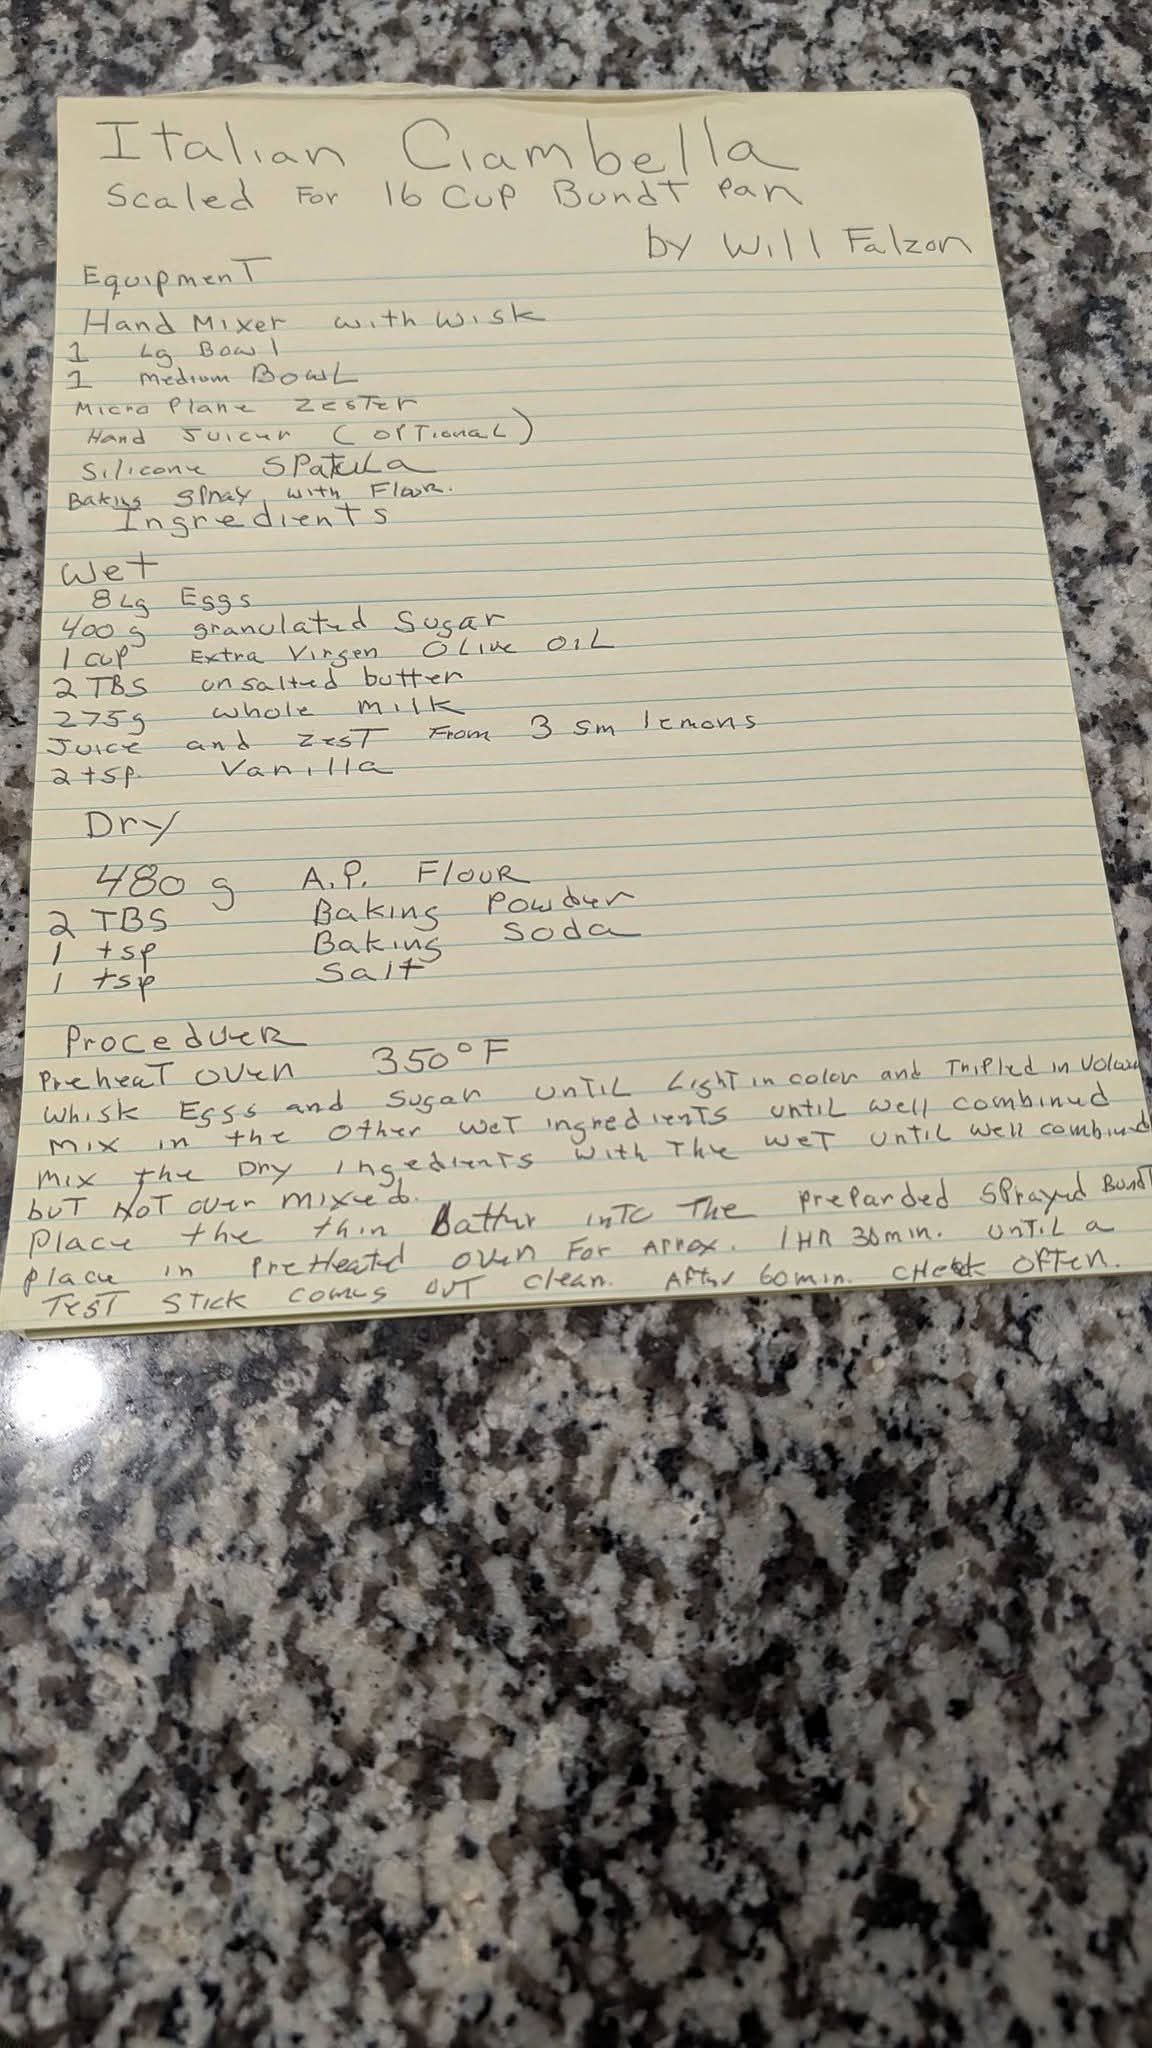 Italian Ciambella
Scaled For 16 Cup Bundt Pan
by Will Falzon
Equipment
Hand Mixer with Wisk
1 Lg Bowl
1 medium Bowl
Micro Plane Zester
Hand Juicer (optional)
Silicone Spatula
Baking Spray with Flour.
Ingredients
Wet
8 Lg Eggs
400 g granulated Sugar
1 cup Extra Virgen Olive Oil
2 TBS unsalted butter
275g whole milk
Juice and Zest From 3 sm lemons
2 tsp. Vanilla
Dry
480 g A.P. Flour
2 TBS Baking Powder
1 tsp Baking Soda
1 tsp Salt
Proceduer
Preheat oven 350°F
Whisk Eggs and Sugar until Light in color and Tripled in Volume
Mix in the other wet ingredients until well combined
Mix the Dry ingedients with the wet until well combined
but Not over mixed.
Place the thin Batter into the preparded sprayed Bundt
Place in PreHeated oven for Approx. 1HR 30min. until a
Test stick comes out clean. After 60min. check often.